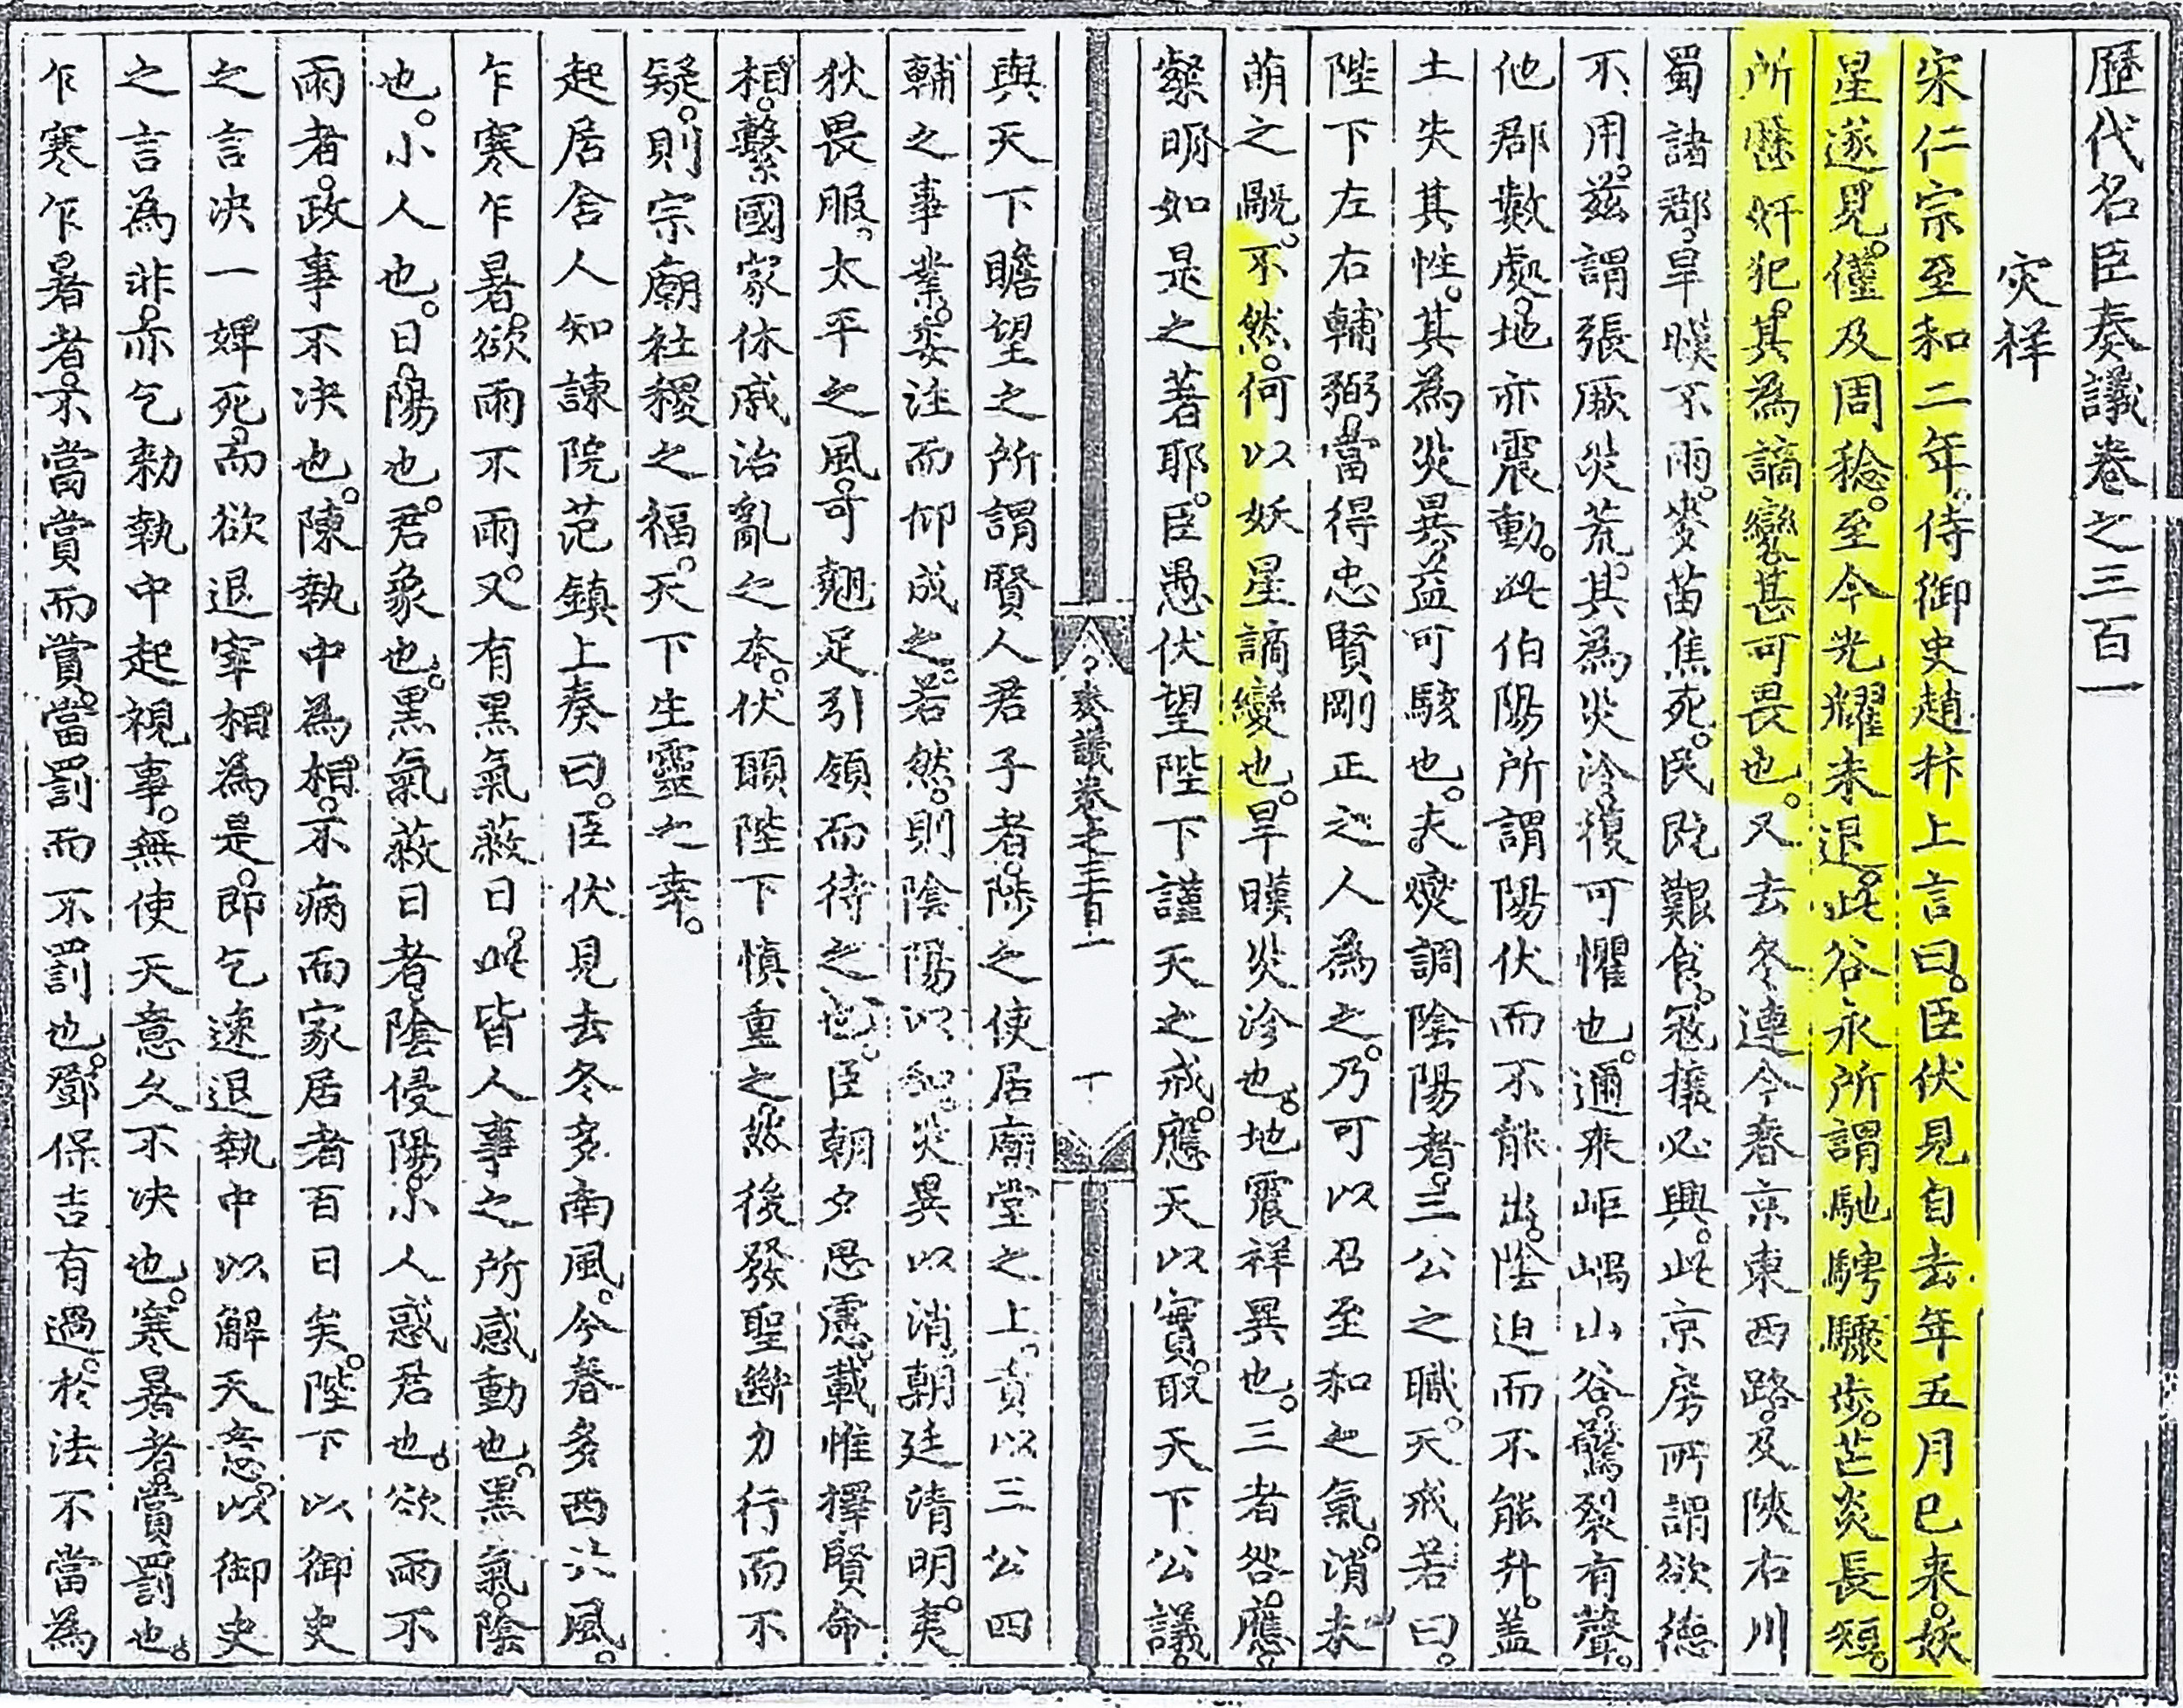 歷代名臣奏議卷之三百一
灾祥
宋仁宗至和二年。侍御史趙抃上言曰。臣伏見自去年五月已来。妖
星遂見。僅及周稔。至今光耀未退。此谷永所謂馳騁驟步。芒炎長短。
所歷奸犯。其為謫變甚可畏也。又去冬連今春京東西路。及陝右川
蜀諸郡。旱暵不雨。麥苗焦死。民既艱食。冦攘必興。此京房所謂欲德
不用。兹謂張厥灾荒。其為灾沴復可懼也。邇来岠嵎山谷。驚裂有聲。
他郡數處。地亦震動。此伯陽所謂陽伏而不能出。陰迫而不能升。盖
土失其性。其為灾異益可駭也。夫燮調陰陽者。三公之職。天戒若曰。
陛下左右輔弼。當得忠賢剛正之人為之。乃可以召至和之氣。消未
萌之厩。不然。何以妖星謫變也。旱暵灾沴也。地震祥異也。三者咎應。
粲明如是之著耶。臣愚伏望陛下謹天之戒。應天以實。取天下公議。
奏議卷之三百一
與天下瞻望之所謂賢人君子者。陟之使居廟堂之上。責以三公四
輔之事業。委注而仰成之。若然。則陰陽以和。灾異以消。朝廷清明。夷
狄畏服。太平之風。可翹足引領而待之也。臣朝夕思慮。載惟擇賢命
相。繫國家休戚治亂之本。伏願陛下慎重之。然後發聖斷力行而不
疑。則宗廟社稷之福。天下生靈之幸。
起居舍人知諫院范鎮上奏曰。臣伏見去冬多南風。今春多西北風。
乍寒乍暑。欲雨不雨。又有黑氣蔽日。此皆人事之所感動也。黑氣。陰
也。小人也。日。陽也。君象也。黑氣蔽日者。陰侵陽。小人惑君也。欲雨不
雨者。政事不决也。陳執中為相。不病而家居者百日矣。陛下以御史
之言决一婢死。而欲退宰相為是。即乞速退執中以解天意。以御史
之言為非。亦乞勑執中起視事。無使天意久不决也。寒暑者賞罰也。
乍寒乍暑者。不當賞而賞。當罰而不罰也。鄧保吉有過。於法不當為